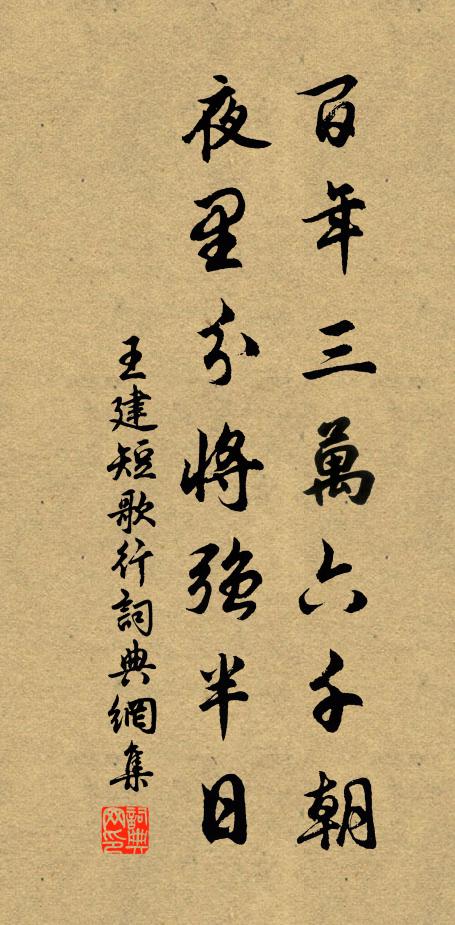 百年三萬六千朝
夜里分將強半日
王建短歌行詞典網集
詞典網印